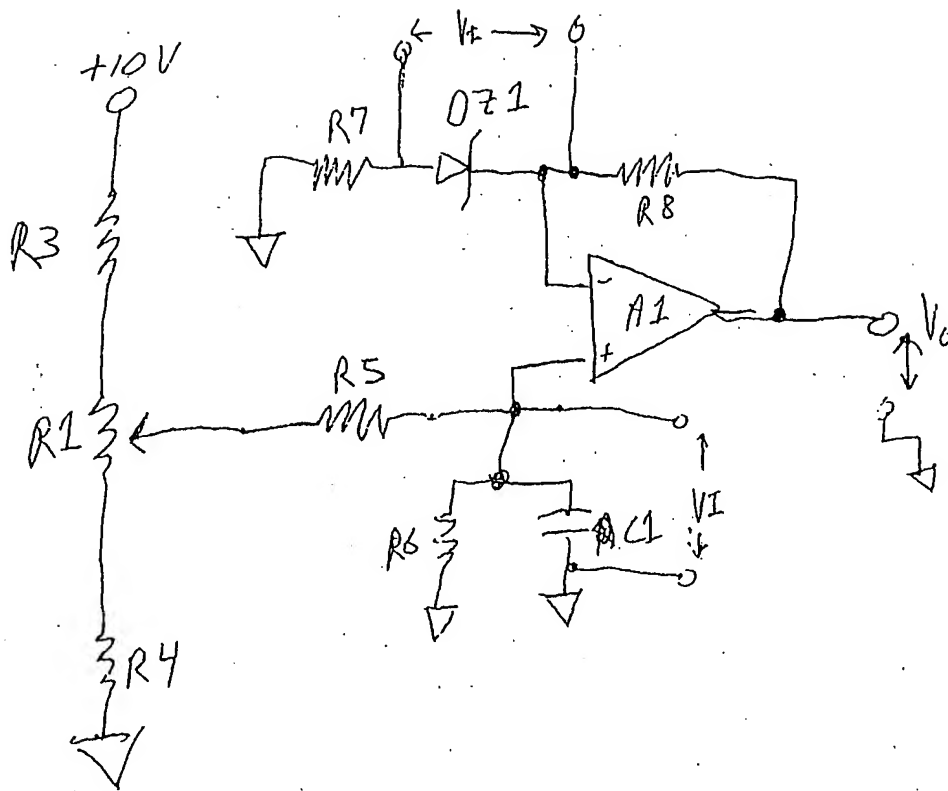 +10V
← Vz →
DZ1
R7
R8
R3
- A1
+
Vo
R5
R1
VI
R6
C1
R4